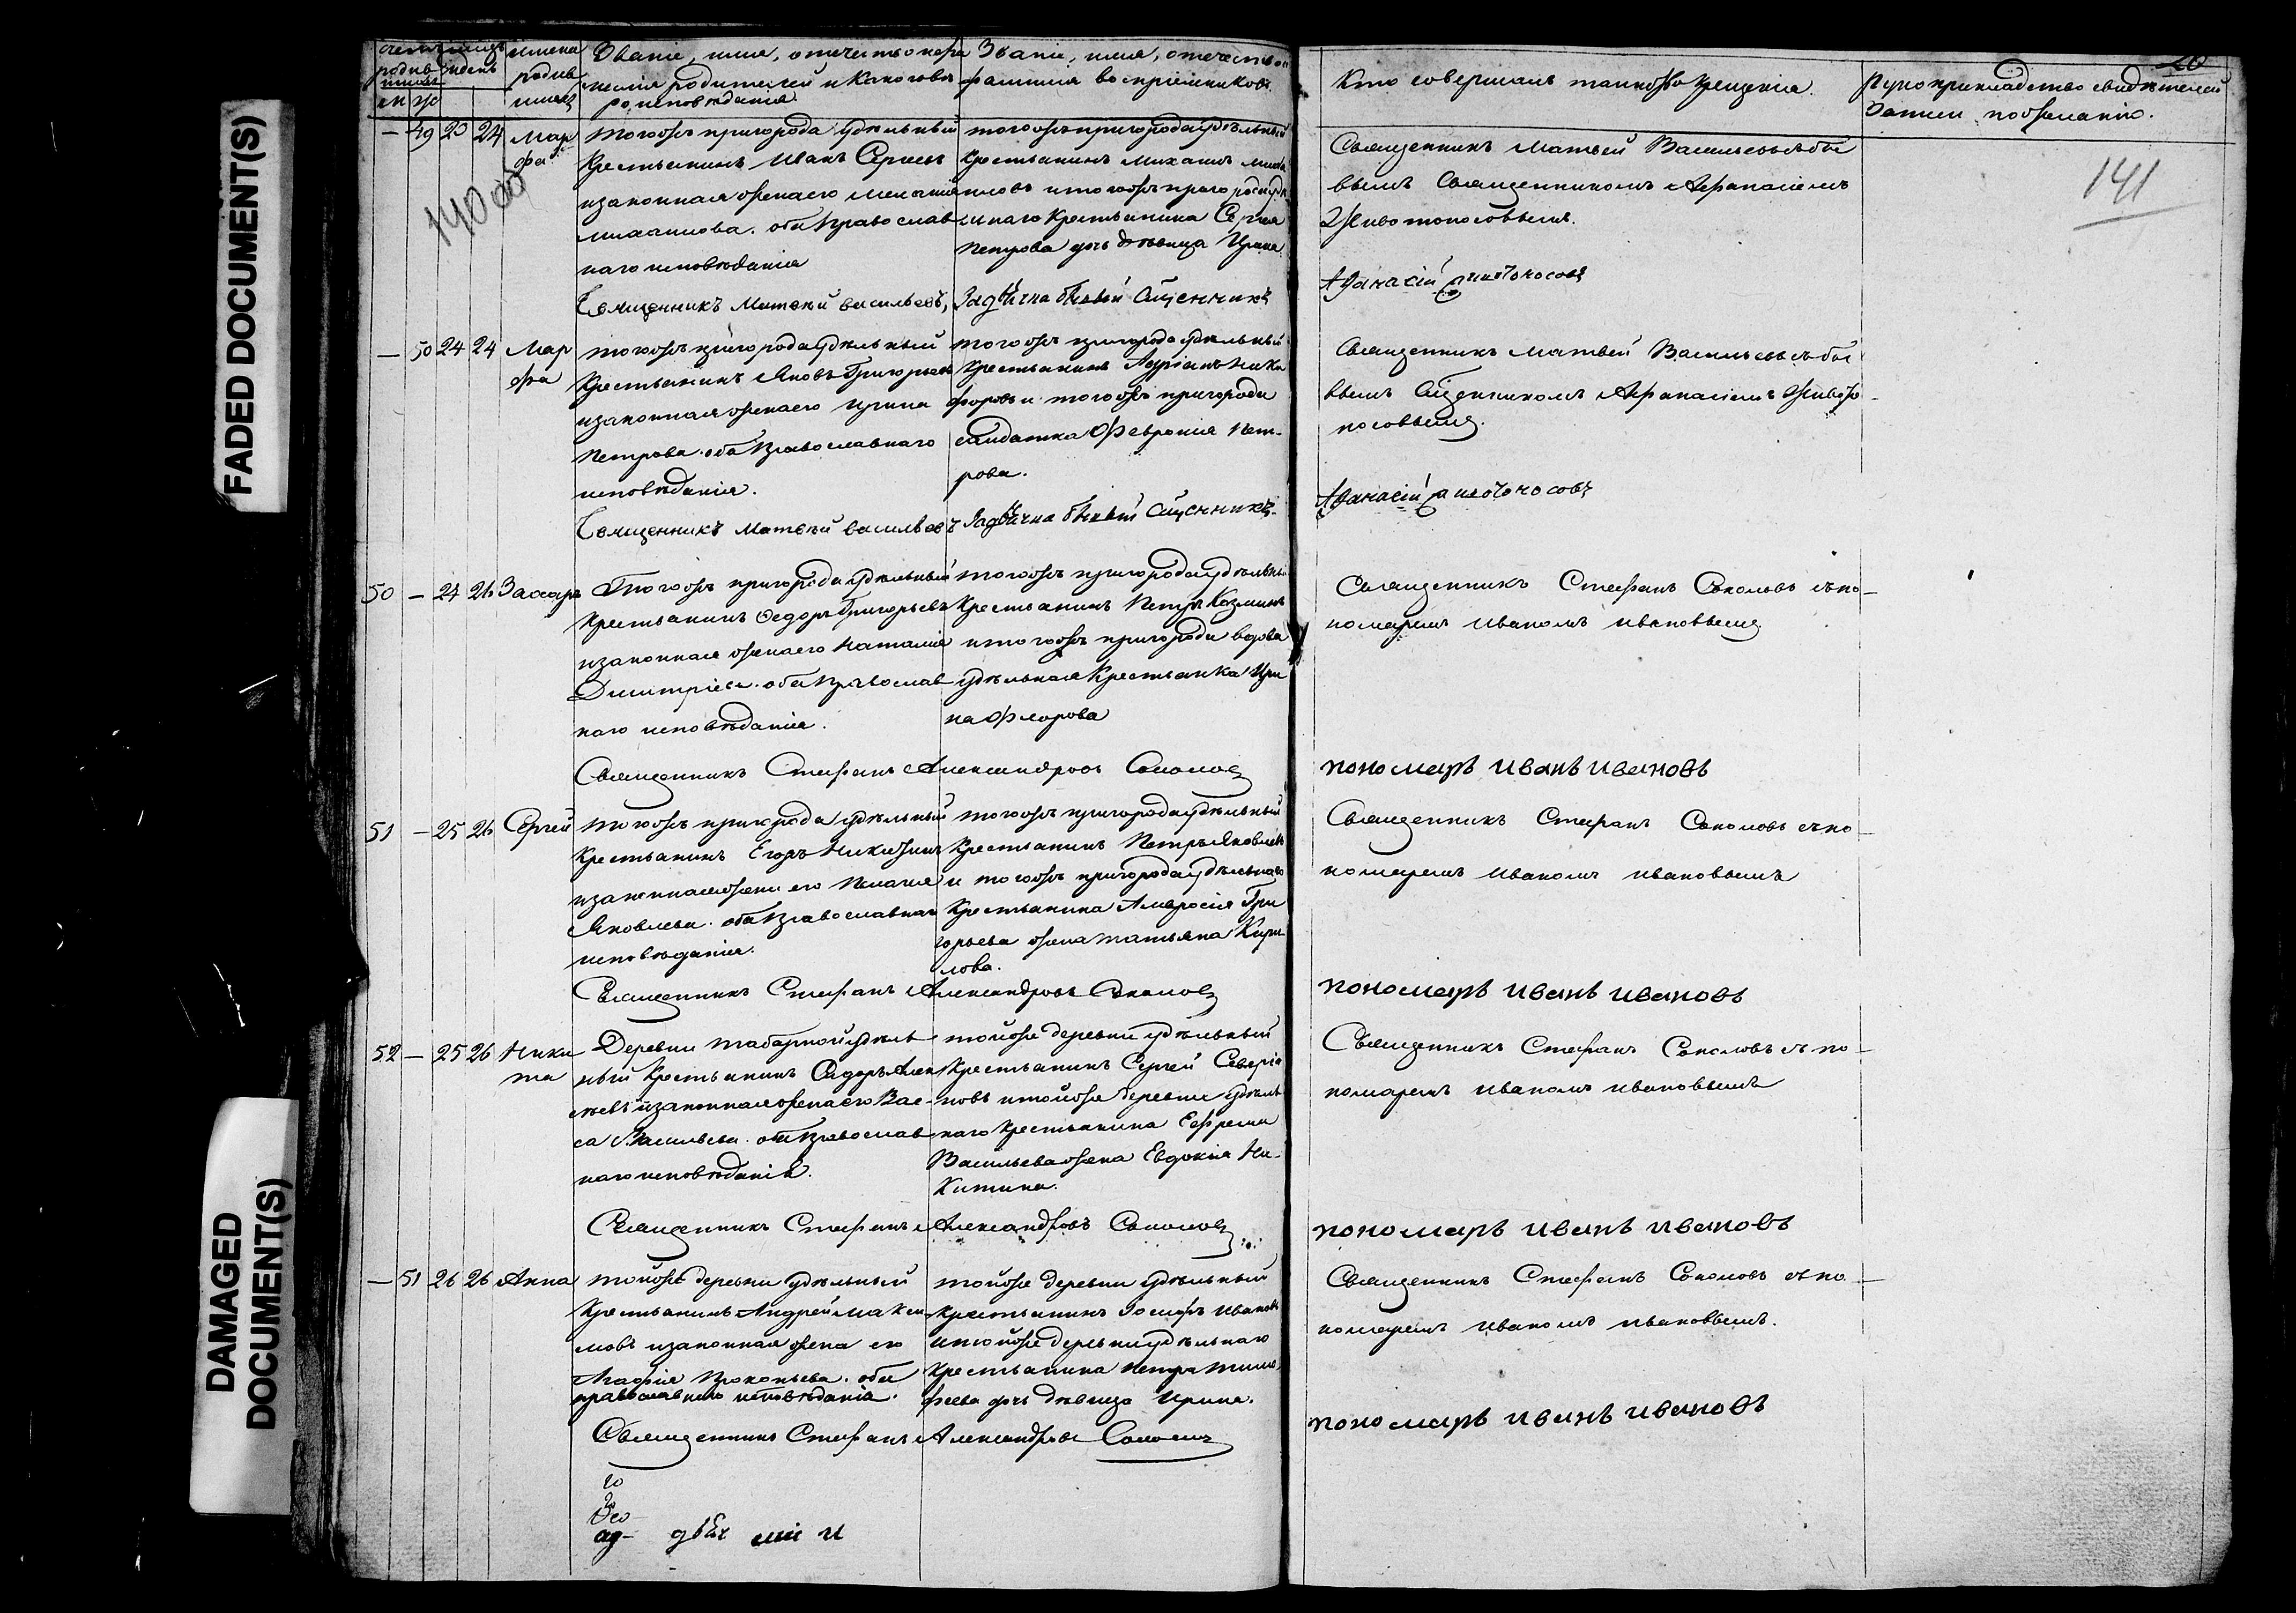 FADED DOCUMENT(S)
DAMAGED
DOCUMENT(S)
Званіе, имя, отечество и фа
милія родителей и какого вѣ
роисповѣданія.
Званіе, имя, отечество и
фамилія воспріемниковъ.
Кто совершалъ таинство крещенія.
Рукоприкладство свидѣтелей
записи по желанію.
141
— 49 23 24 Мар
ѳа
тогожъ пригорода удѣльный
крестьянинъ Иванъ Сергѣевъ
и законная жена его Меланія
Михаилова. оба православ
наго исповѣданія
тогожъ пригорода удѣльный
крестьянинъ Михаилъ
и тогожъ пригорода удѣ
льнаго крестьянина Сергѣя
Петрова дочь дѣвица Ирина
Священникъ Матвей Васильевъ съ бы
вымъ Священникомъ Афанасіемъ
Живоносовымъ.
Священникъ Матвей Васильевъ,
Аѳанасій
— 50 24 24 Мар
ѳа
тогожъ пригорода удѣльный
крестьянинъ Яковъ Григорьевъ
и законная жена его Ирина
Петрова. оба православнаго
исповѣданія.
тогожъ пригорода удѣльный
крестьянинъ Ники
форовъ и тогожъ пригорода
салдатка Февронія Пет-
рова.
Священникъ Матвей Васильевъ съ бы
вымъ Священникомъ Афанасіемъ
Священникъ Матвей Васильевъ
Аѳанасій
50 — 24 26 Захаръ
Тогожъ пригорода удѣльный
крестьянинъ Ѳедоръ Григорьевъ
и законная жена его Наталія
Димитріева. оба православ
наго исповѣданія.
тогожъ пригорода удѣльный
крестьянинъ Петръ Козминъ
и тогожъ пригорода вдова
удѣльная крестьянка Ири
на Флорова
Священникъ Стефанъ Соколовъ съ по-
номаремъ Иваномъ Ивановымъ
Священникъ Стефанъ Александровъ Соколовъ
пономарь Иванъ Ивановъ
51 — 25 26 Сергей
тогожъ пригорода удѣльный
крестьянинъ Егоръ Никитинъ
и законная жена его Пелагія
Яковлева. оба православнаго
исповѣданія.
тогожъ пригорода удѣльный
крестьянинъ Петръ Яковлевъ
и тогожъ пригорода удѣльнаго
крестьянина Амвросія Гри
горьева жена Татьяна Кири
лова.
Священникъ Стефанъ Соколовъ съ по-
номаремъ Иваномъ Ивановымъ
Священникъ Стефанъ Александровъ Соколовъ
пономарь Иванъ Ивановъ
52 — 25 26 Ники
та
Деревни удѣль
ный крестьянинъ Сидоръ Алек
сѣевъ и законная жена его Вас-
са Васильева. оба православ
наго исповѣданія.
тойже деревни удѣльный
крестьянинъ Сергей Северія
новъ и тойже деревни удѣль
наго крестьянина Ефрема
Васильева жена Евдокія Ни-
китина.
Священникъ Стефанъ Соколовъ съ по-
номаремъ Иваномъ Ивановымъ
Священникъ Стефанъ Александровъ Соколовъ
пономарь Иванъ Ивановъ
— 51 26 26 Анна
тойже деревни удѣльный
крестьянинъ Андрей Макси
мовъ и законная жена его
Агафія Прокопьева. оба
православнаго исповѣданія.
тойже деревни удѣльный
крестьянинъ Іосифъ Ивановъ
и тойже деревни удѣльнаго
крестьянина Петра Тимо
феева дочь дѣвица Ирина.
Священникъ Стефанъ Соколовъ съ по-
номаремъ Иваномъ Ивановымъ.
Священникъ Стефанъ Александровъ Соколовъ
пономарь Иванъ Ивановъ